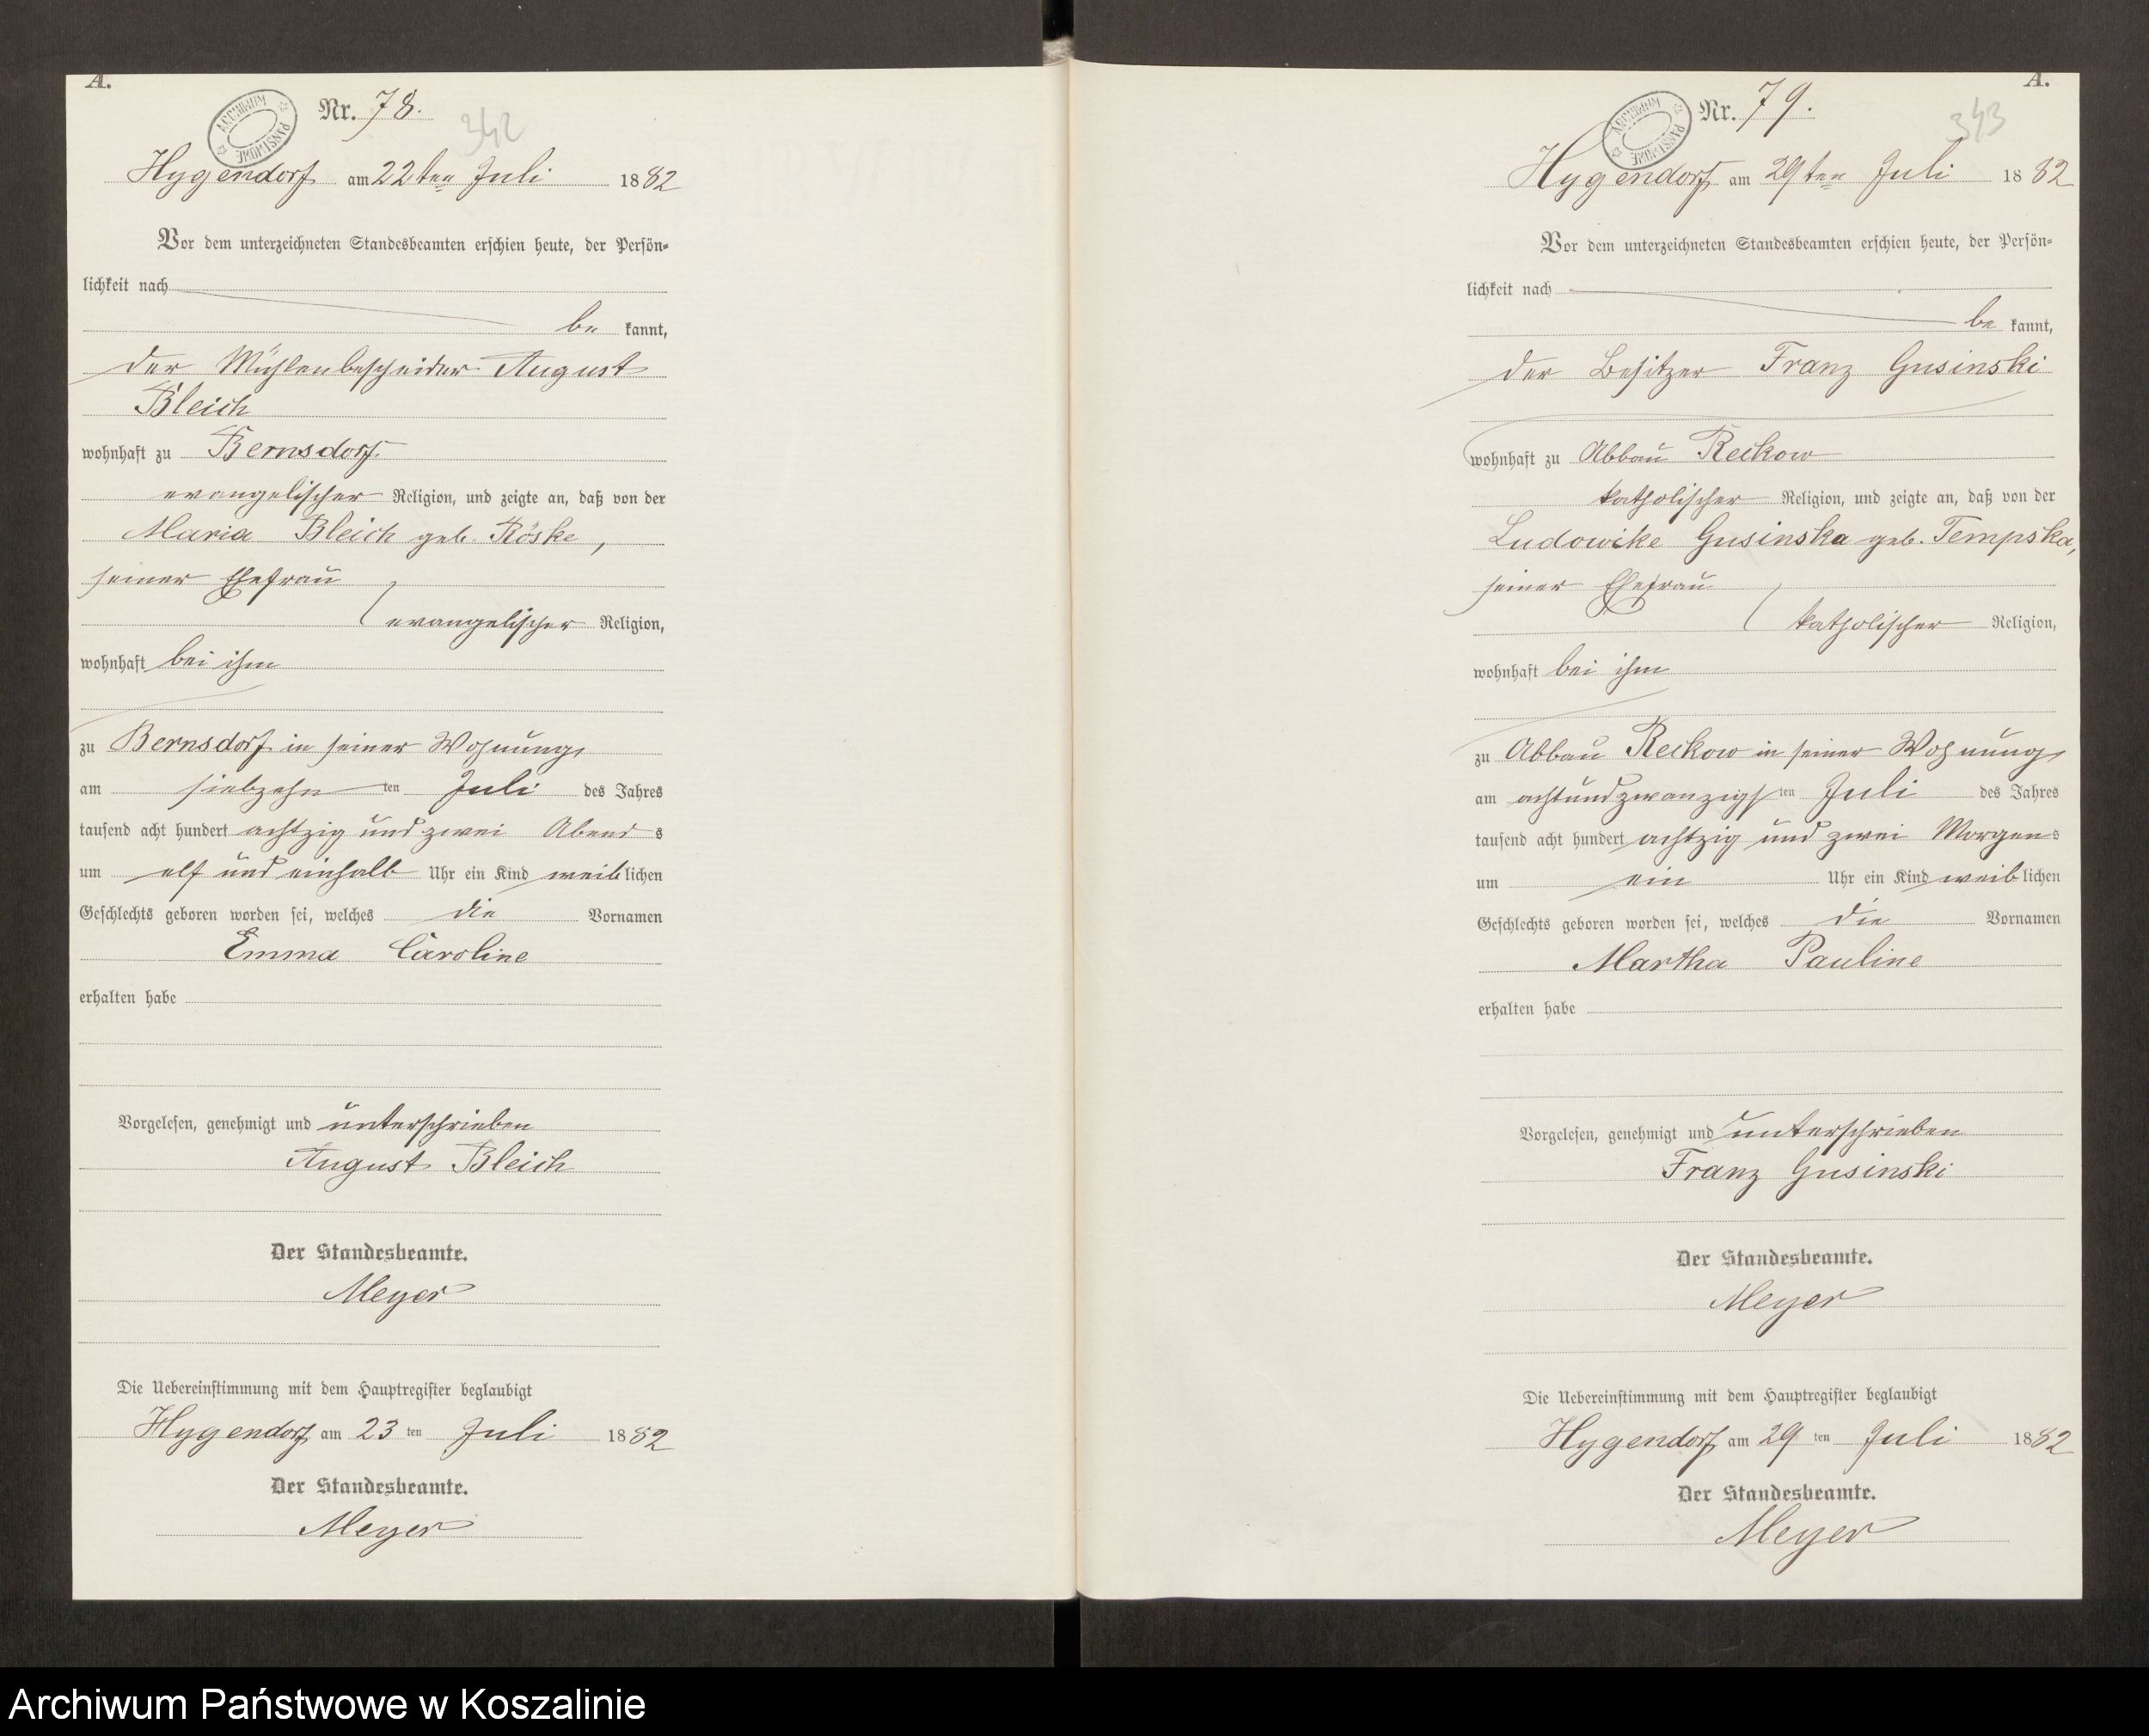 A.
ARCHIWUM PAŃSTWOWE
Nr. 78.
342
Hygendorf am 22ten Juli 1882
Vor dem unterzeichneten Standesbeamten erschien heute, der Persön-
lichkeit nach
be kannt,
der Mühlenbescheider August
Bleich
wohnhaft zu Bernsdorf
evangelischer Religion, und zeigte an, daß von der
Maria Bleich geb. Röske,
seiner Ehefrau
evangelischer Religion,
wohnhaft bei ihm
zu Bernsdorf in seiner Wohnung,
am siebzehn ten Juli des Jahres
tausend acht hundert achtzig und zwei Abend s
um elf und einhalb Uhr ein Kind weib lichen
Geschlechts geboren worden sei, welches die Vornamen
Emma Caroline
erhalten habe
Vorgelesen, genehmigt und unterschrieben
August Bleich
Der Standesbeamte.
Meyer
Die Uebereinstimmung mit dem Hauptregister beglaubigt
Hygendorf am 23 ten Juli 1882
Der Standesbeamte.
Meyer
A.
ARCHIWUM PAŃSTWOWE
Nr. 79.
343
Hygendorf am 29ten Juli 1882
Vor dem unterzeichneten Standesbeamten erschien heute, der Persön-
lichkeit nach
be kannt,
der Besitzer Franz Gusinski
wohnhaft zu Abbau Reckow
katholischer Religion, und zeigte an, daß von der
Ludowike Gusinska geb. Tempska,
seiner Ehefrau
katholischer Religion,
wohnhaft bei ihm
zu Abbau Reckow in seiner Wohnung,
am achtundzwanzigs ten Juli des Jahres
tausend acht hundert achtzig und zwei Morgen s
um ein Uhr ein Kind weib lichen
Geschlechts geboren worden sei, welches die Vornamen
Martha Pauline
erhalten habe
Vorgelesen, genehmigt und unterschrieben
Franz Gusinski
Der Standesbeamte.
Meyer
Die Uebereinstimmung mit dem Hauptregister beglaubigt
Hygendorf am 29 ten Juli 1882
Der Standesbeamte.
Meyer
Archiwum Państwowe w Koszalinie